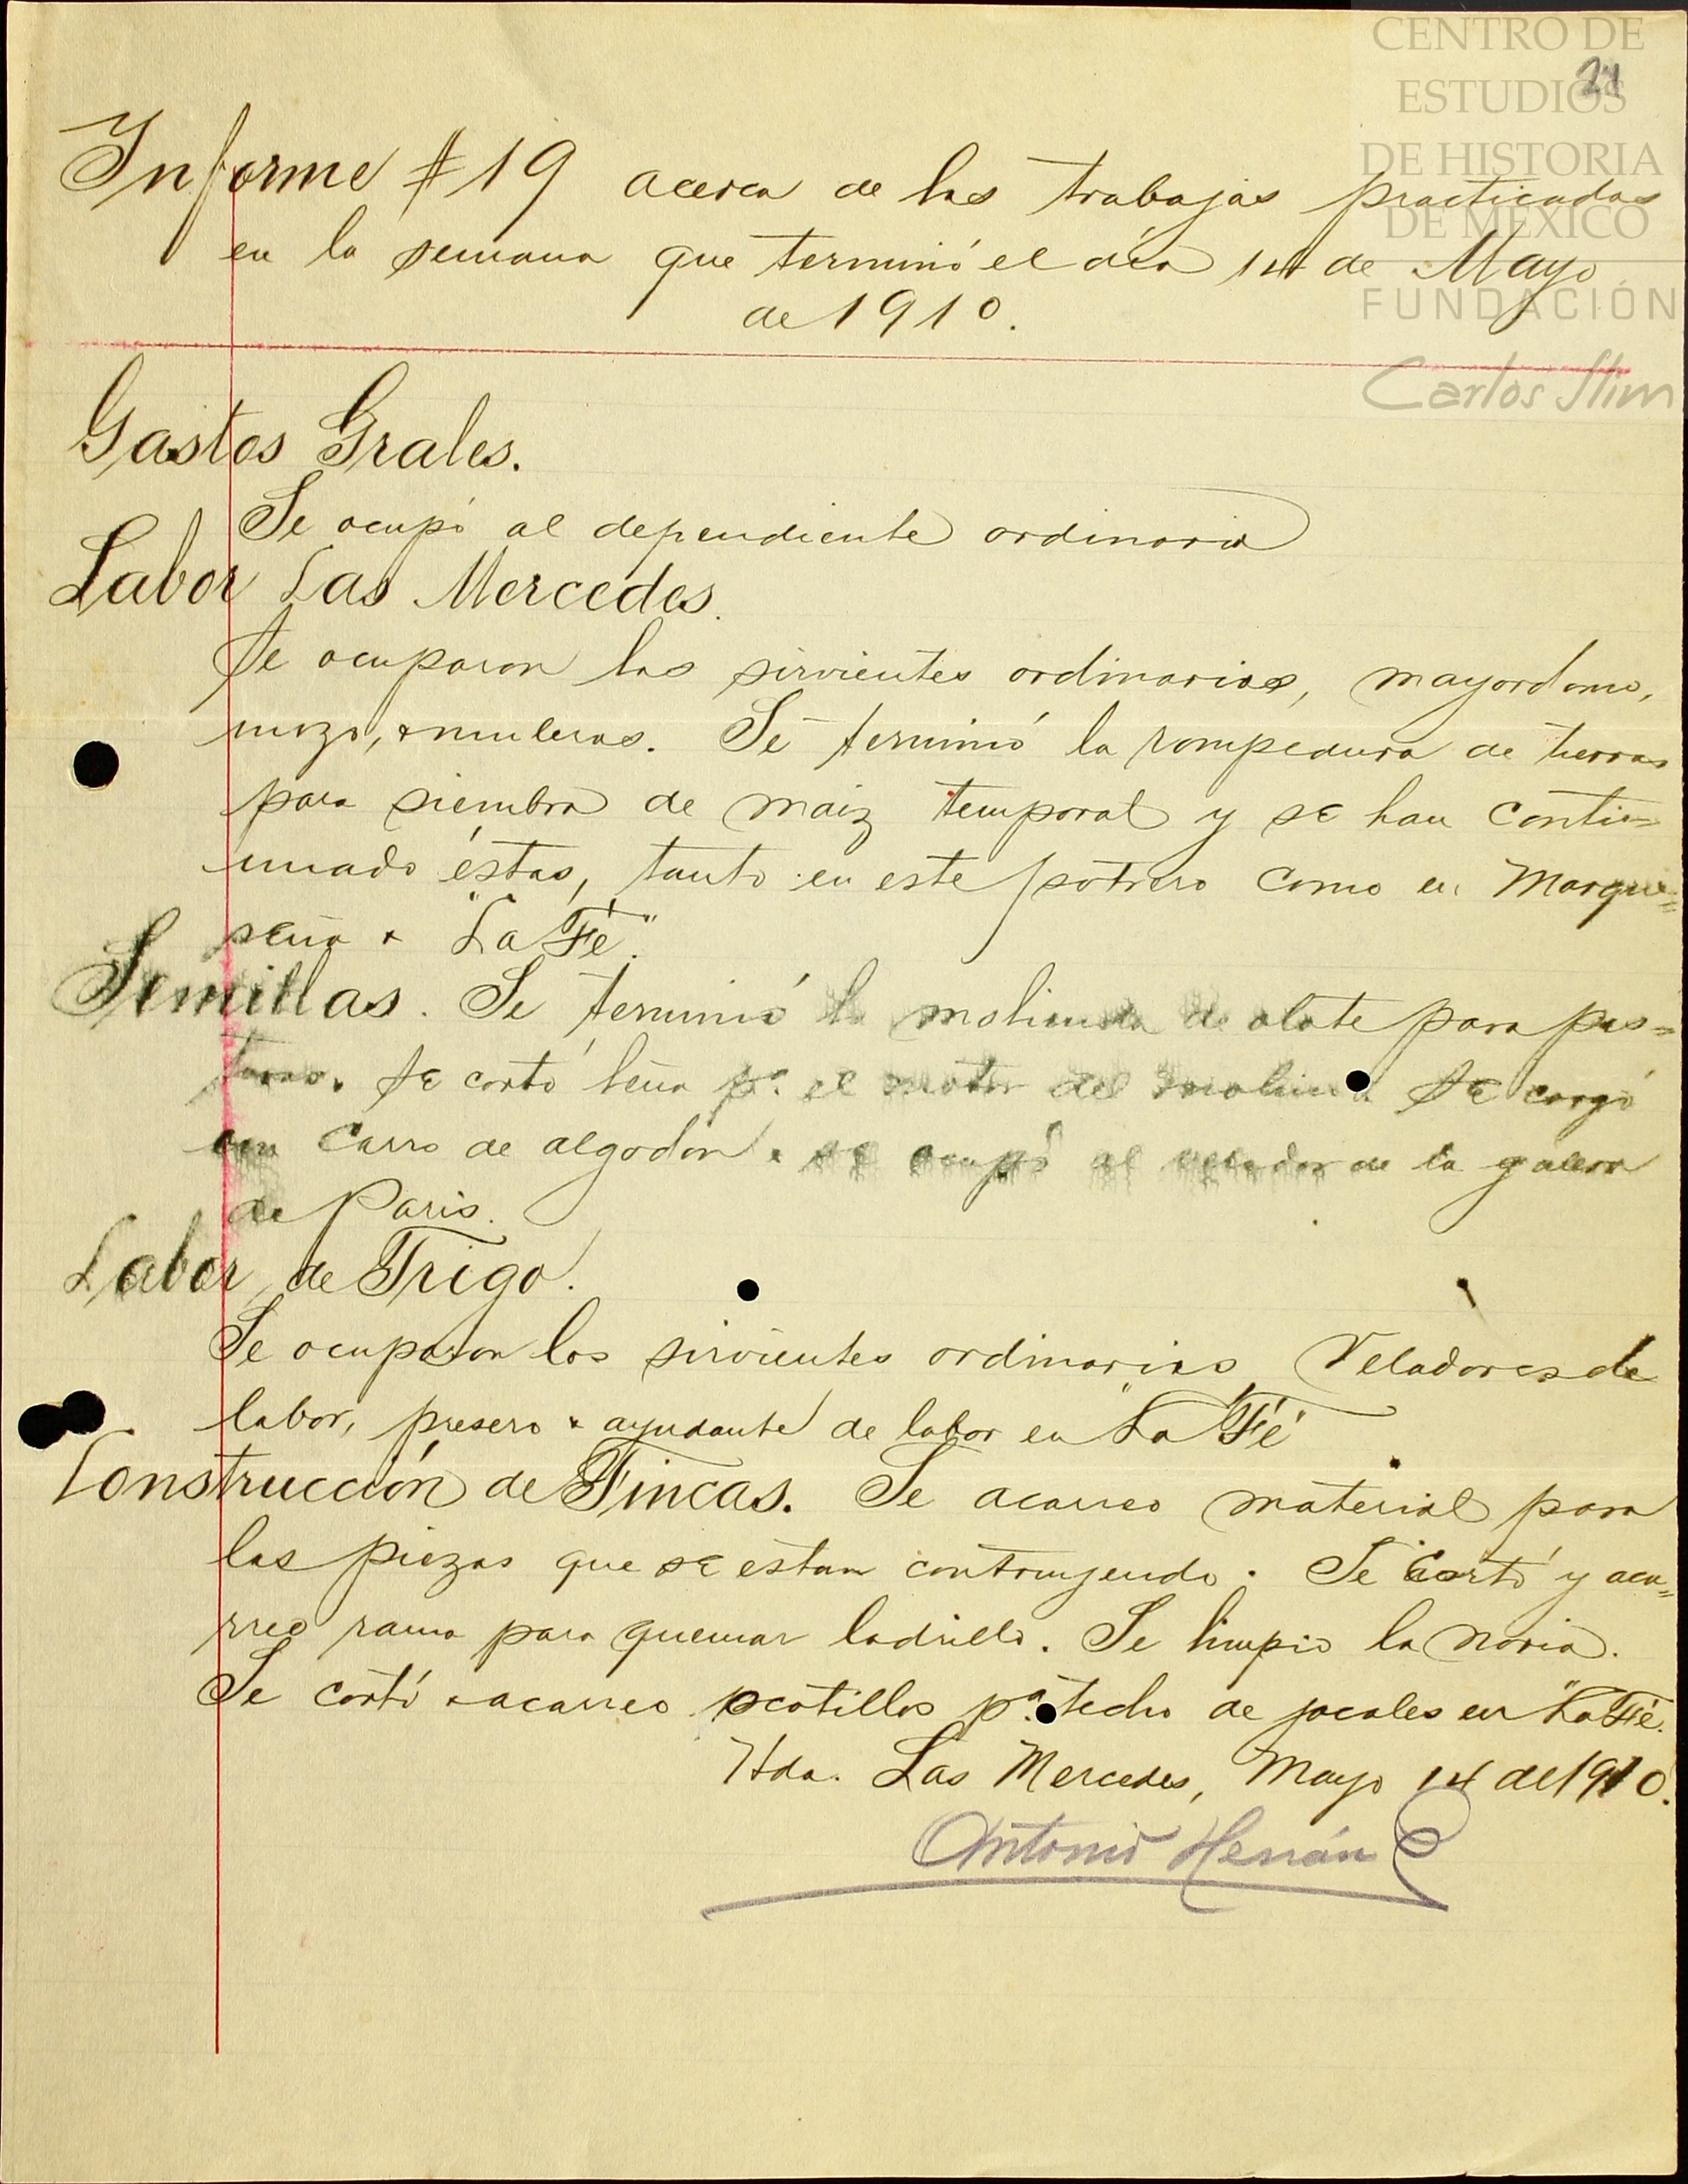 CENTRO DE
ESTUDIOS
DE HISTORIA
DE MÉXICO
FUNDACIÓN
Carlos Slim
21
Informe # 19 acerca de los trabajos practicados
en la semana que terminó el día 14 de Mayo
de 1910.
Gastos Grales.
Se ocupó al dependiente ordinario
Labor Las Mercedes.
Se ocuparon los sirvientes ordinarios, mayordomo,
mozo, & muleros. Se terminó la rompedura de tierras
para siembra de maiz temporal y se han conti=
nuado éstas, tanto en este potrero como en Marque=
seña & "La Fé".
Semillas. Se terminó la molienda de olote para pas=
turas. Se cortó leña pa. el motor del molino. Se cargó
un carro de algodon & se ocupó al velador de la galera
de Paris.
Labor de Trigo.
Se ocuparon los sirvientes ordinarios Veladores de
labor, presero & ayudante de labor en "La Fé"
Construcción de Fincas. Se acarreo material para
las piezas que se estan contruyendo. Se cortó y aca=
rreo rama para quemar ladrillo. Se limpio la noria.
Se cortó & acarreo ocotillos pa. techo de jacales en "La Fé.
Hda. Las Mercedes, Mayo 14 de 1910.
Antonio Herrán